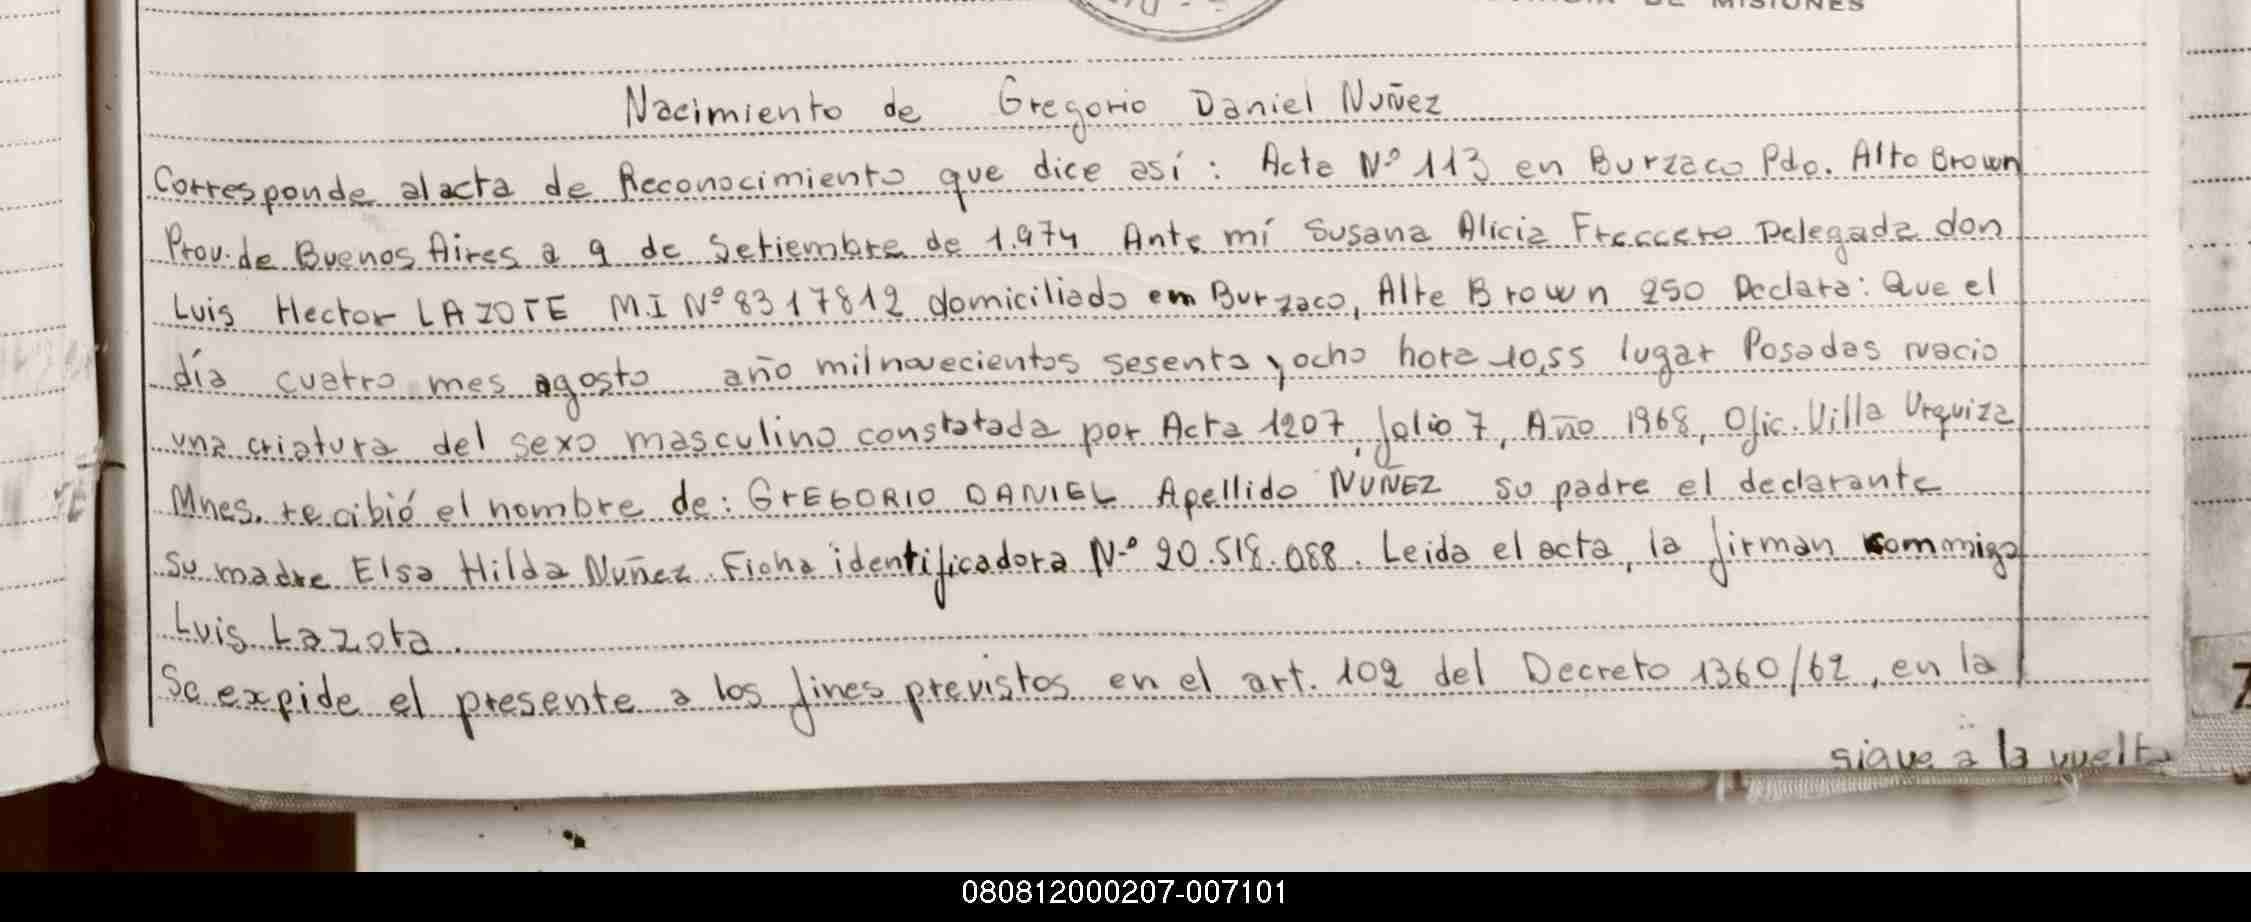 DE MISIONES
Nacimiento de Gregorio Daniel Nuñez
Corresponde al acta de Reconocimiento que dice así: Acta Nº 113 en Burzaco Pdo. Alto Brown
Prov. de Buenos Aires a 9 de Setiembre de 1.974 Ante mí Susana Alicia Freccero Delegada don
Luis Hector LAZOTE M.I Nº 8317812 domiciliado em Burzaco, Alte Brown 250 Declara: Que el
día cuatro mes agosto año mil novecientos sesenta y ocho hora 10,55 lugar Posadas nacio
una criatura del sexo masculino constatada por Acta 1207, folio 7, Año 1968, Ofic. Villa Urquiza
Mnes. recibió el nombre de: GrEGORIO DANIEL Apellido NUÑEZ su padre el declarante
su madre Elsa Hilda Nuñez. Ficha identificadora Nº 20.518.088. Leida el acta, la firman commigo
Luis Lazota.
Se expide el presente a los fines previstos en el art. 102 del Decreto 1360/62, en la
sigue a la vuelta
080812000207-007101